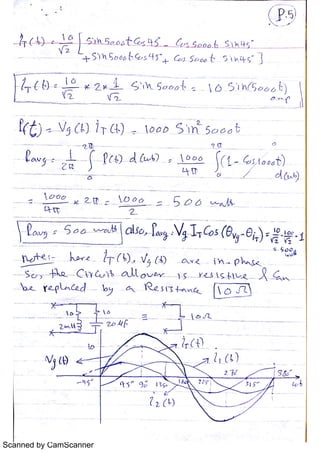 P.5
i_T(t) = 10/√2 [ Sin 5000t Cos 45° - Cos 5000t Sin 45°
+ Sin 5000t Cos 45° + Cos 5000t Sin 45° ]
i_T(t) = 10/√2 * 2 * 1/√2 Sin 5000t = 10 Sin(5000t) amp
P(t) = Vg(t) i_T(t) = 1000 Sin² 5000t
Pavg = 1/2π ∫ P(t) d(ωt) = 1000/4π ∫ (1 - Cos 10000t) d(ωt)
= 1000/4π * 2π = 1000/2 = 500 watt
Pavg = 500 watt also, Pavg = Vg I_T Cos(θvg - θiT) = 10/√2 · 100/√2 · 1 = 500 watt
notes:- here i_T(t), Vg(t) are in-phase
So, the Circuit allover is resistive & Can
be replaced by a Resistance 10 Ω
10 10 ≡ 10 Ω
2mH 20 µF
10 i_T(t)
Vg(t) i₁(t)
-45° 45° 90° 135° 180 225 270 315° 360° ωt
i₂(t)
Scanned by CamScanner